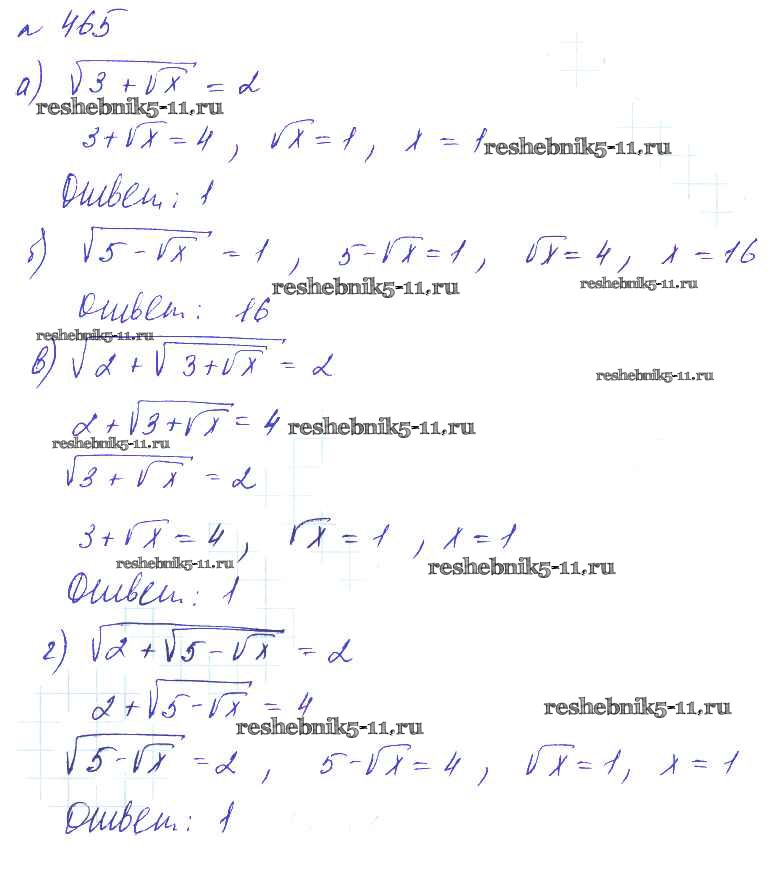 № 465
а) √(3 + √x) = 2
reshebnik5-11.ru
3 + √x = 4, √x = 1, x = 1 reshebnik5-11.ru
Ответ: 1
б) √(5 - √x) = 1, 5 - √x = 1, √x = 4, x = 16
reshebnik5-11.ru reshebnik5-11.ru
Ответ: 16
reshebnik5-11.ru
в) √(2 + √(3 + √x)) = 2
reshebnik5-11.ru
2 + √(3 + √x) = 4 reshebnik5-11.ru
reshebnik5-11.ru
√(3 + √x) = 2
3 + √x = 4, √x = 1, x = 1
reshebnik5-11.ru reshebnik5-11.ru
Ответ: 1
г) √(2 + √(5 - √x)) = 2
2 + √(5 - √x) = 4 reshebnik5-11.ru
reshebnik5-11.ru
√(5 - √x) = 2, 5 - √x = 4, √x = 1, x = 1
Ответ: 1